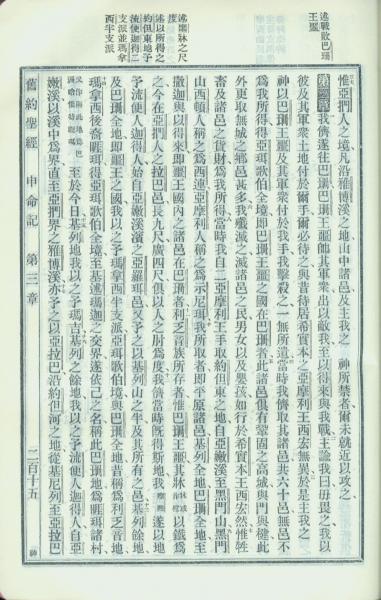 述戰敗巴珊王噩
惟亞捫人之境凡沿雅博溪之地山中諸邑及主我之　神所禁者爾未就近以攻之
第三章 我儕遂往巴珊巴珊王噩偕其軍衆出以敵我至以得來與我戰主諭我曰毋畏之我以
彼及其軍衆土地付於爾手爾必待之與昔待居希實本之亞摩利王西宏無異於是主我之
神以巴珊王噩及其軍衆付於我手我擊殺之一無所遺當時我儕取其諸邑共六十邑無邑不
爲我所得得亞珥歌伯全境即巴珊王噩之國在巴珊者此諸邑俱有鞏固之高城與門與楗此
外更取無城之鄉邑甚多我殲滅之滅諸邑之民男女以及嬰孩如行於希實本王西宏然惟牲
畜及諸邑之貨財爲我所得當時我自二亞摩利王手取約但東之地自亞嫩溪至黑門山黑門
山西頓人稱之爲西連亞摩利人稱之爲示尼珥我所取者即平原諸邑基列全地巴珊全地至
述噩牀之尺度
撒迦與以得來即噩王國內之諸邑在巴珊者利乏音族所存者惟巴珊王噩其牀以鐵爲
之今在亞捫人之拉巴邑長九尺廣四尺俱以人之肘爲度我儕當時旣得斯地我遂以地
述以所得之約但東地予流便迦得二支派並瑪拿西半支派
予流便人迦得人始自亞嫩溪濱之亞羅珥邑又予之以基列山之半及其所有之邑基列餘地
及巴珊全地即噩王之國我以之予瑪拿西半支派亞珥歌伯境與巴珊全地昔稱爲利乏音地
瑪拿西後裔睚珥得亞珥歌伯全境至基述瑪迦之交界遂依己之名稱此巴珊地爲睚珥諸村
至於今日基列地我以之予瑪吉基列之餘地我以之予流便人迦得人自亞
嫩溪以溪中爲界直至亞捫界之雅博溪亦予之以亞拉巴沿約但河之地從基尼列至亞拉巴
舊約聖經　申命記　第三章　二百十五